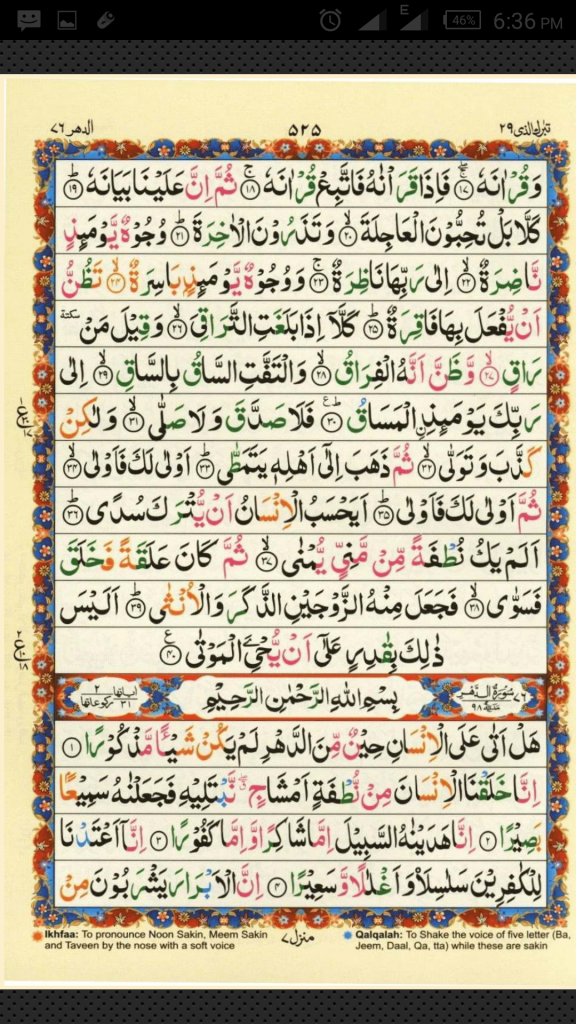 E
46%
6:36 PM
تبٰرك الذی ٢٩
٥٢٥
الدهر ٧٦
وَقُرْاٰنَهٗ ﴿١٧﴾ فَاِذَا قَرَاْنٰهُ فَاتَّبِعْ قُرْاٰنَهٗ ﴿١٨﴾ ثُمَّ اِنَّ عَلَيْنَا بَيَانَهٗ ﴿١٩﴾
كَلَّا بَلْ تُحِبُّوْنَ الْعَاجِلَةَ ﴿٢٠﴾ وَتَذَرُوْنَ الْاٰخِرَةَ ﴿٢١﴾ وُجُوْهٌ يَّوْمَىِٕذٍ
نَّاضِرَةٌ ﴿٢٢﴾ اِلٰى رَبِّهَا نَاظِرَةٌ ﴿٢٣﴾ وَوُجُوْهٌ يَّوْمَىِٕذٍۭ بَاسِرَةٌ ﴿٢٤﴾ تَظُنُّ
اَنْ يُّفْعَلَ بِهَا فَاقِرَةٌ ﴿٢٥﴾ كَلَّاۤ اِذَا بَلَغَتِ التَّرَاقِيَ ﴿٢٦﴾ وَقِيْلَ مَنْ سكتة
رَاقٍ ﴿٢٧﴾ وَّظَنَّ اَنَّهُ الْفِرَاقُ ﴿٢٨﴾ وَالْتَفَّتِ السَّاقُ بِالسَّاقِ ﴿٢٩﴾ اِلٰى
رَبِّكَ يَوْمَىِٕذِ اِ۟لْمَسَاقُ ﴿٣٠﴾ فَلَا صَدَّقَ وَلَا صَلّٰى ﴿٣١﴾ وَلٰكِنْ
كَذَّبَ وَتَوَلّٰى ﴿٣٢﴾ ثُمَّ ذَهَبَ اِلٰۤى اَهْلِهٖ يَتَمَطّٰى ﴿٣٣﴾ اَوْلٰى لَكَ فَاَوْلٰى ﴿٣٤﴾
ثُمَّ اَوْلٰى لَكَ فَاَوْلٰى ﴿٣٥﴾ اَيَحْسَبُ الْاِنْسَانُ اَنْ يُّتْرَكَ سُدًى ﴿٣٦﴾
اَلَمْ يَكُ نُطْفَةً مِّنْ مَّنِيٍّ يُّمْنٰى ﴿٣٧﴾ ثُمَّ كَانَ عَلَقَةً فَخَلَقَ
فَسَوّٰى ﴿٣٨﴾ فَجَعَلَ مِنْهُ الزَّوْجَيْنِ الذَّكَرَ وَالْاُنْثٰى ﴿٣٩﴾ اَلَيْسَ
ذٰلِكَ بِقٰدِرٍ عَلٰۤى اَنْ يُّحْيِۦَ الْمَوْتٰى ﴿٤٠﴾
٧٦ سورة الدهر مدنية ٩٨
بِسْمِ اللهِ الرَّحْمٰنِ الرَّحِيْمِ
اٰياتها ٣١ ركوعاتها ٢
هَلْ اَتٰى عَلَى الْاِنْسَانِ حِيْنٌ مِّنَ الدَّهْرِ لَمْ يَكُنْ شَيْـًٔا مَّذْكُوْرًا ﴿١﴾
اِنَّا خَلَقْنَا الْاِنْسَانَ مِنْ نُّطْفَةٍ اَمْشَاجٍ نَّبْتَلِيْهِ فَجَعَلْنٰهُ سَمِيْعًۢا
بَصِيْرًا ﴿٢﴾ اِنَّا هَدَيْنٰهُ السَّبِيْلَ اِمَّا شَاكِرًا وَّاِمَّا كَفُوْرًا ﴿٣﴾ اِنَّاۤ اَعْتَدْنَا
لِلْكٰفِرِيْنَ سَلٰسِلَا۟ وَاَغْلٰلًا وَّسَعِيْرًا ﴿٤﴾ اِنَّ الْاَبْرَارَ يَشْرَبُوْنَ مِنْ
منزل ٧
Ikhfaa: To pronounce Noon Sakin, Meem Sakin
and Taveen by the nose with a soft voice
Qalqalah: To Shake the voice of five letter (Ba,
Jeem, Daal, Qa, tta) while these are sakin